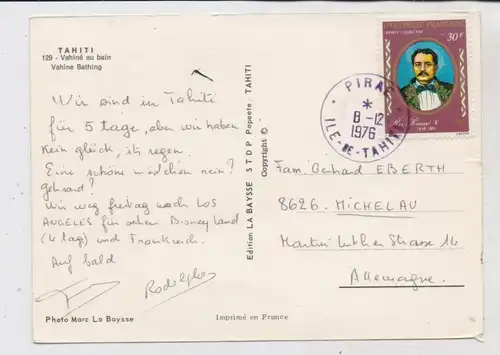 TAHITI
129 - Vahiné au bain
Vahine Bathing
Wir sind in Tahiti
für 5 tage, aber wir haben
kein glück, its regen.
Eine schöne mädchen nein?
Gerhard?
Wir weg freitag nach LOS
ANGELES für sehen Disney land
(4 tag) und Frankreich.
Auf bald
Rodolphe
Photo Marc La Baysse
Imprimé en France
Edition LA BAYSSE S T D P Papeete - TAHITI
Copyright ©
PIRAE
*
8-12
1976
ILE-DE-TAHITI
POLYNESIE FRANÇAISE
30F
Roi Pomaré V
Fam. Gerhard EBERTH
8626. MICHELAU
Martin Luther Strasse 14
Allemagne.